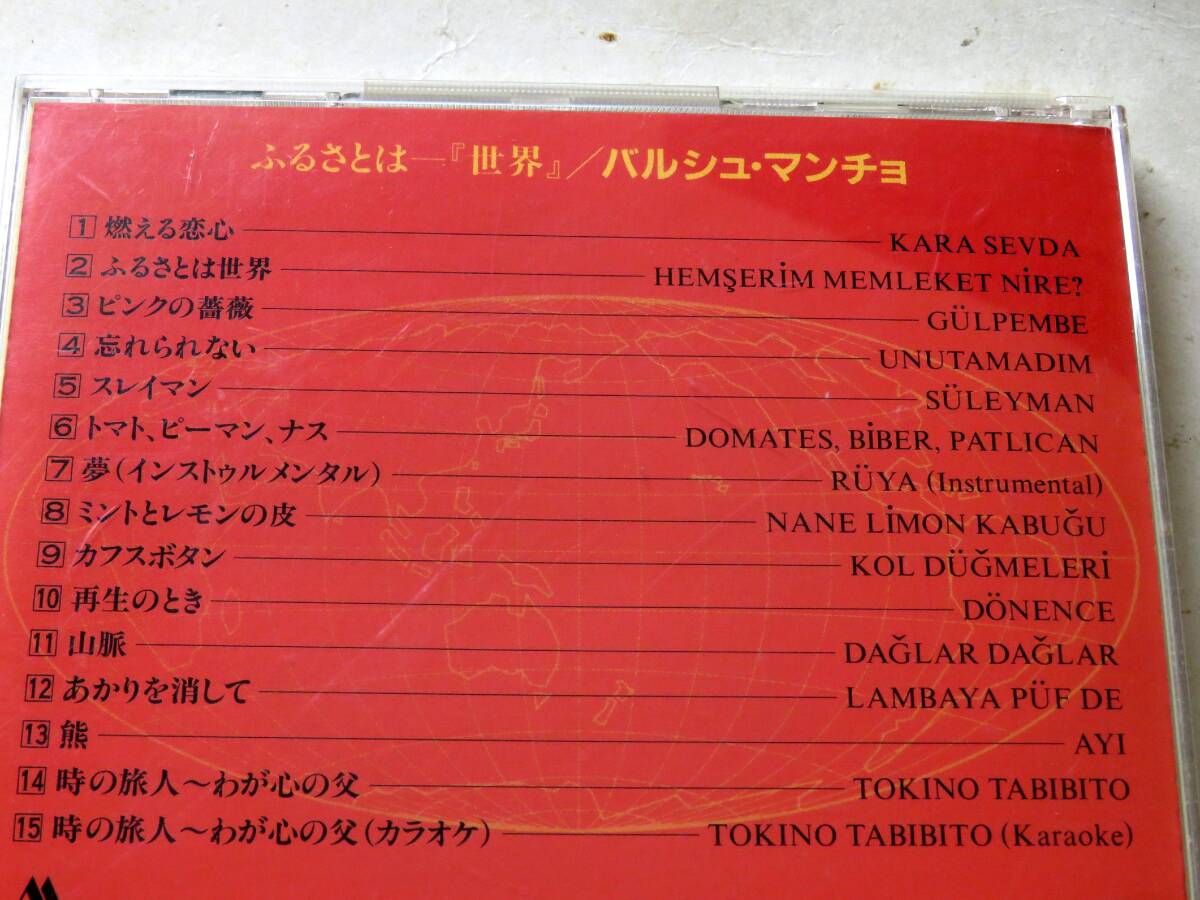 ふるさとは─『世界』／バルシュ・マンチョ
1 燃える恋心 KARA SEVDA
2 ふるさとは世界 HEMŞERİM MEMLEKET NİRE?
3 ピンクの薔薇 GÜLPEMBE
4 忘れられない UNUTAMADIM
5 スレイマン SÜLEYMAN
6 トマト、ピーマン、ナス DOMATES, BİBER, PATLICAN
7 夢（インストゥルメンタル） RÜYA (Instrumental)
8 ミントとレモンの皮 NANE LİMON KABUĞU
9 カフスボタン KOL DÜĞMELERİ
10 再生のとき DÖNENCE
11 山脈 DAĞLAR DAĞLAR
12 あかりを消して LAMBAYA PÜF DE
13 熊 AYI
14 時の旅人～わが心の父 TOKINO TABIBITO
15 時の旅人～わが心の父（カラオケ） TOKINO TABIBITO (Karaoke)